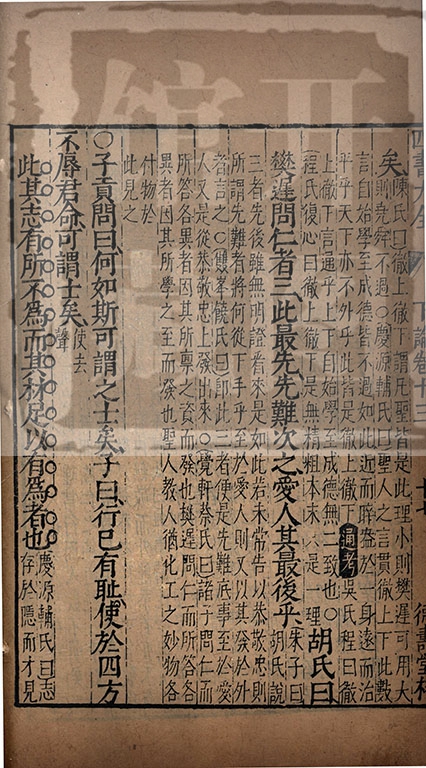 四書大全 下論卷十三 十七
矣陳氏曰徹上徹下謂凡聖皆是此理小則樊遲可用大
則堯舜不過○慶源輔氏曰聖人之言貫徹上下此數
言自始學至成德皆不過如此近而睟盎於一身遠而治
平乎天下亦不外乎此皆是徹上徹下通考吳氏程曰徹
上徹下言通乎上下自始學至成德無二致也○
程氏復心曰徹上徹下是無精粗本末只是一理胡氏曰
樊遲問仁者三此最先先難次之愛人其最後乎朱子曰
胡氏說
三者先後雖無明證看來是如此若未常告以恭敬忠則
所謂先難者將何從下手乎至於愛人則又以其發於外
者言之○雙峯饒氏曰即此三者便是先難底事至於愛
人又是從恭敬忠上發出來○覺軒蔡氏曰諸子問仁而
所答各異者因其所禀之資而發也樊遲問仁而所答各
異者因其所學之至而發也聖人教人猶化工之妙物各
付物於
此見之
○子貢問曰何如斯可謂之士矣子曰行已有恥使於四方
不辱君命可謂士矣使去
聲
此其志有所不為而其材足以有為者也慶源輔氏曰志
存於隱而才見